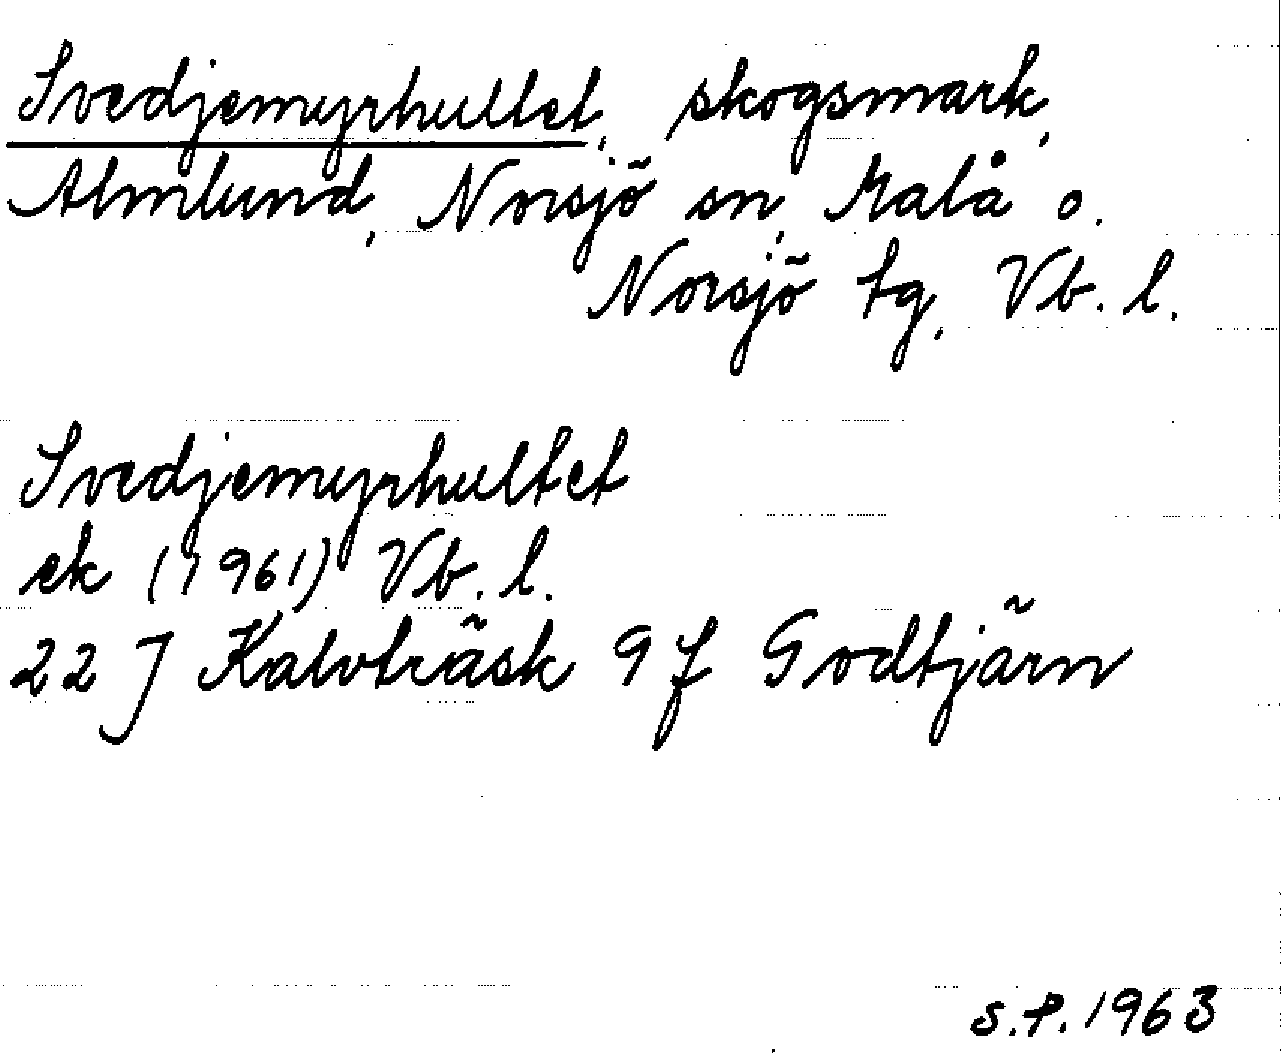 Svedjemyrhultet, skogsmark,
Almlund, Norsjö sn, Malå o.
Norsjö tg, Vb. l.
Svedjemyrhultet
ek (1961) Vb. l.
22 J Kalvträsk 9 f Godtjärn
S.P. 1963